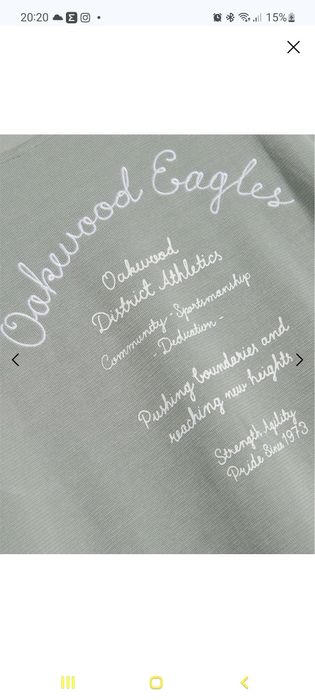 20:20
15%
Oakwood Eagles
Oakwood
District Athletics
Community - Sportsmanship
- Dedication -
Pushing boundaries and
reaching new heights
Strength, Agility
Pride Since 1973